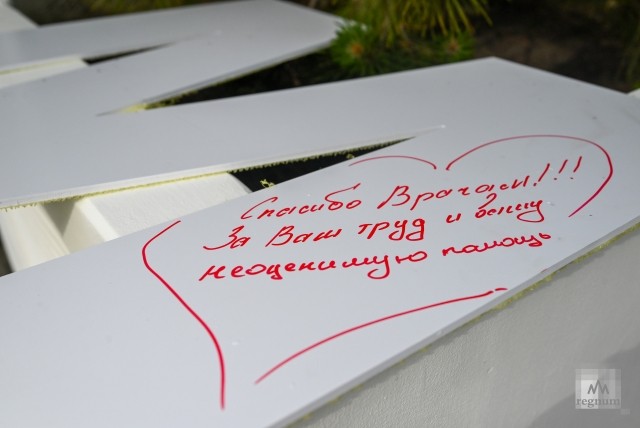 Спасибо Врачам!!!
За Ваш труд и вашу
неоценимую помощь
regnum